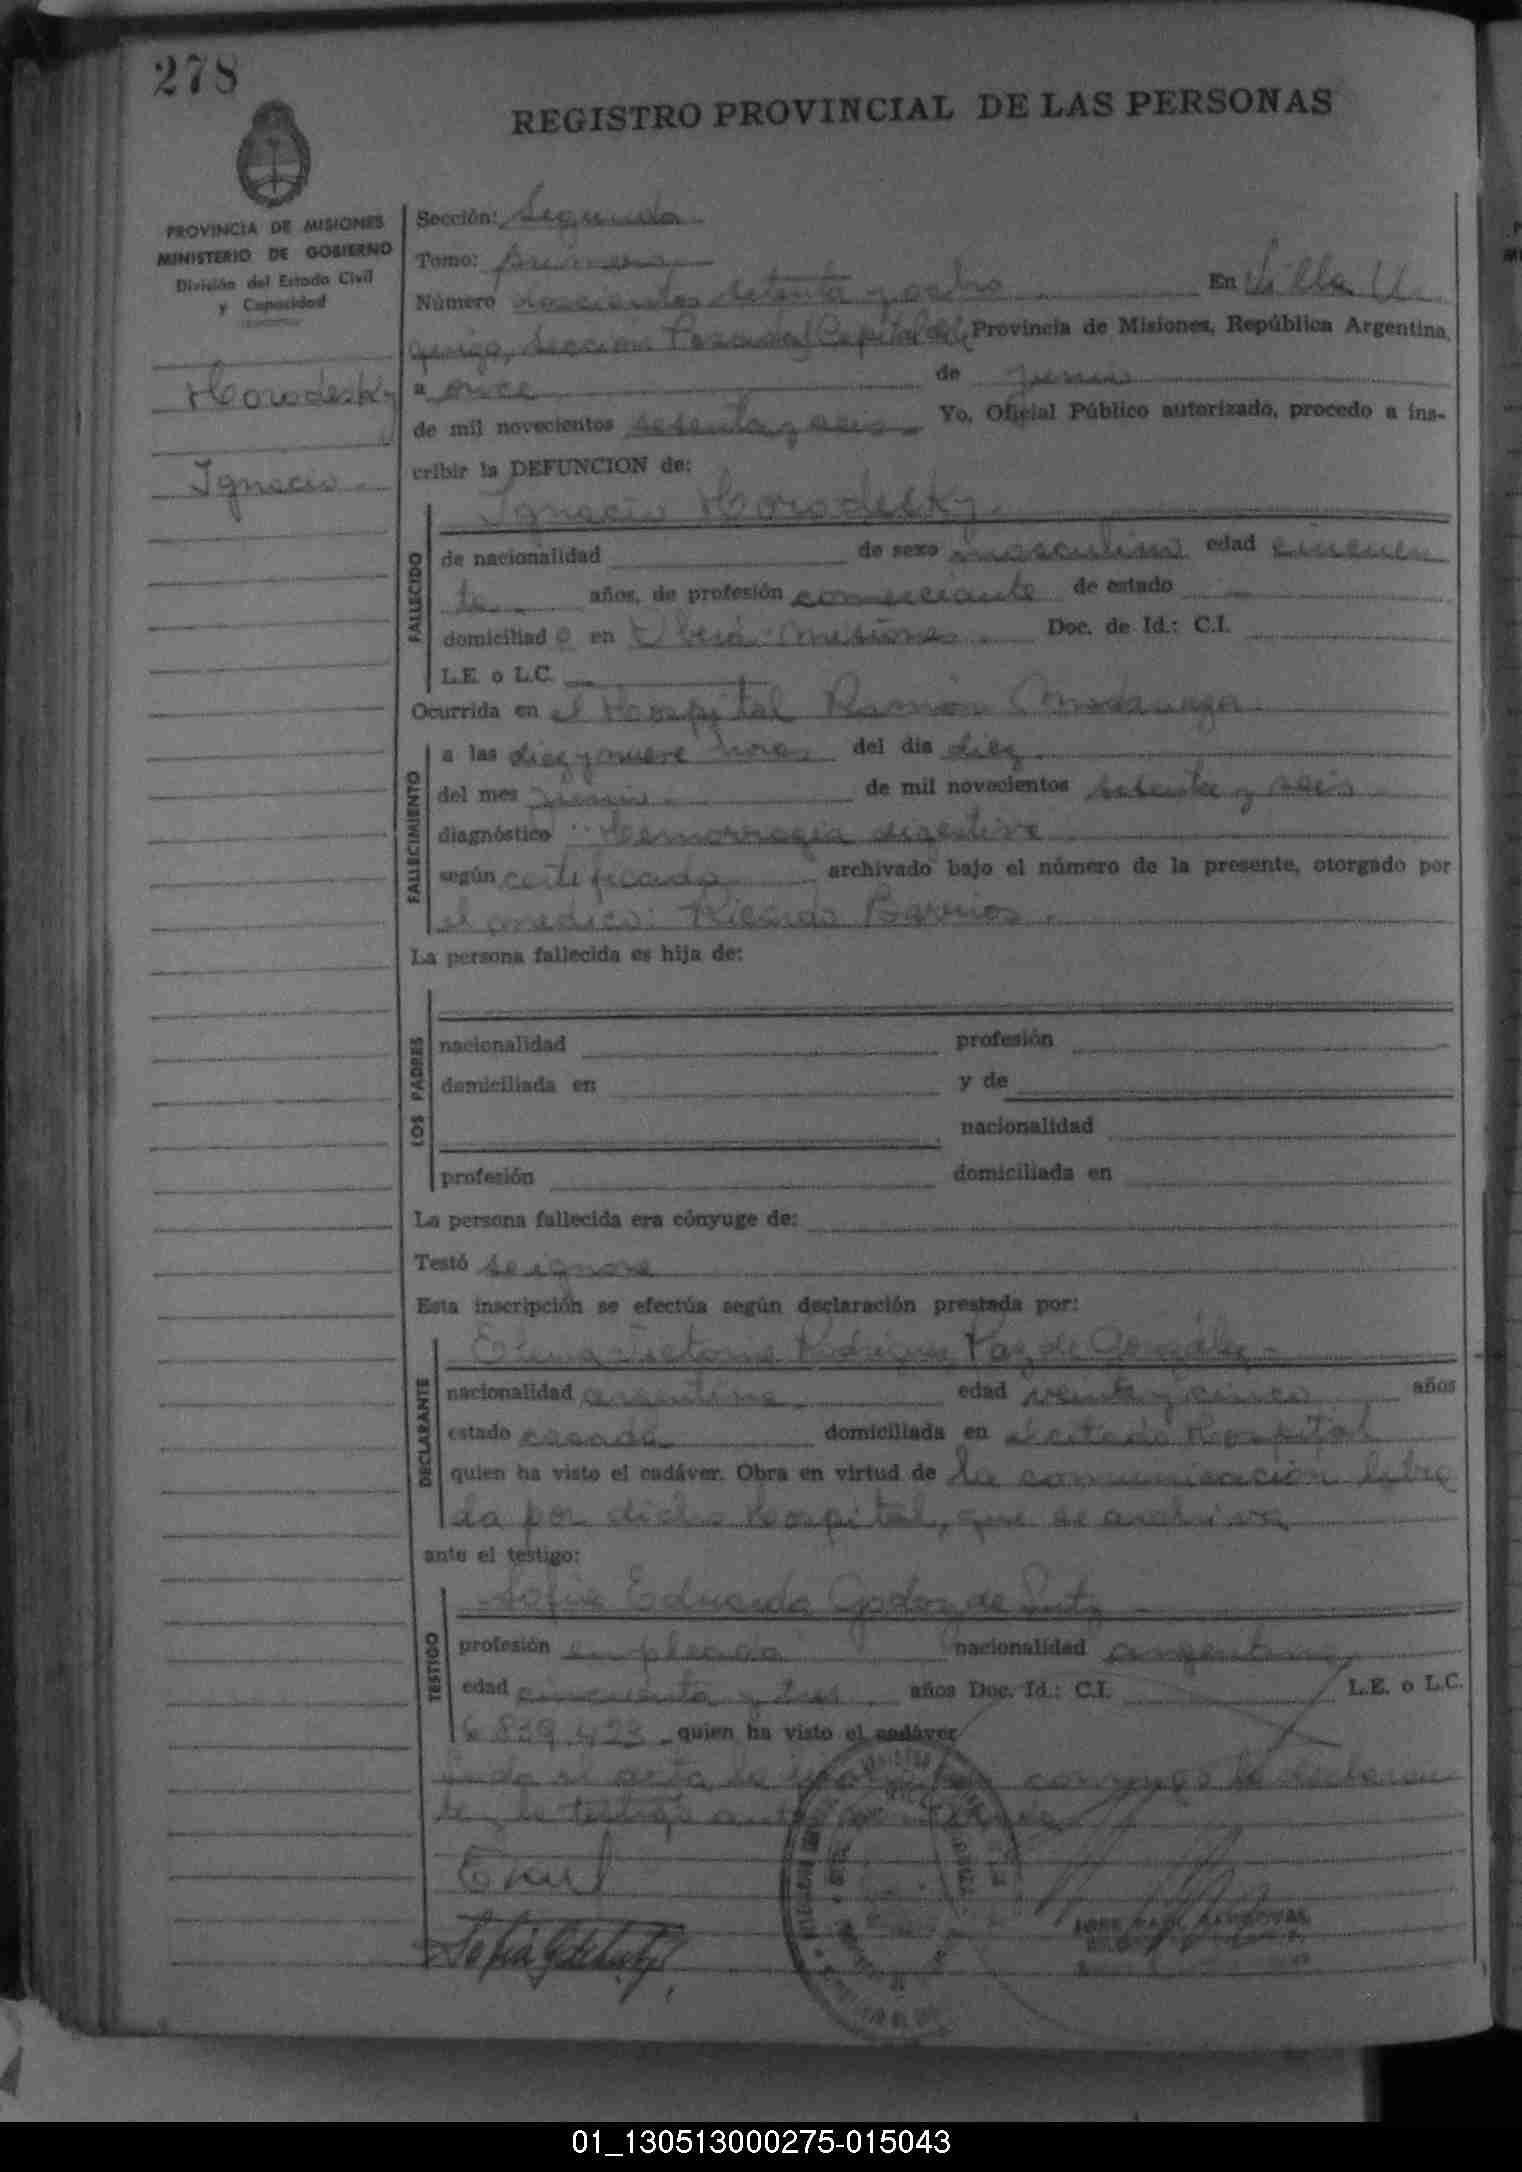 278
REGISTRO PROVINCIAL DE LAS PERSONAS
PROVINCIA DE MISIONES
MINISTERIO DE GOBIERNO
División del Estado Civil
y Capacidad
Horodesky
Ignacio.
Sección: Segunda
Tomo: primero
Número doscientos setenta y ocho En Villa U
quiza, Sección Posadas Capital de la Provincia de Misiones, República Argentina,
a once de junio
de mil novecientos setenta y seis Yo, Oficial Público autorizado, procedo a ins-
cribir la DEFUNCION de:
Ignacio Horodesky.
FALLECIDO
de nacionalidad de sexo masculino edad cincuen
ta años, de profesión comerciante de estado
domiciliado en Oberá Misiones. Doc. de Id.: C.I.
L.E. o L.C.
Ocurrida en el Hospital Ramón Madariaga.
FALLECIMIENTO
a las diez y nueve horas del día diez
del mes junio de mil novecientos setenta y seis
diagnóstico Hemorragia digestiva
según certificado archivado bajo el número de la presente, otorgado por
el médico: Ricardo Barrios.
La persona fallecida es hija de:
LOS PADRES
nacionalidad profesión
domiciliada en y de
nacionalidad
profesión domiciliada en
La persona fallecida era cónyuge de:
Testó se ignora
Esta inscripción se efectúa según declaración prestada por:
DECLARANTE
Elena Victoria Rodriguez Paz de González
nacionalidad argentina edad veinte y cinco años
estado casada domiciliada en el citado Hospital
quien ha visto el cadáver. Obra en virtud de la comunicación libra
da por dicho Hospital, que se archiva
ante el testigo:
TESTIGO
Sofia Eduarda Godoy de Lutz
profesión empleada nacionalidad argentina
edad cincuenta y tres años Doc. Id.: C.I. L.E. o L.C.
6.839.423 quien ha visto el cadáver
el acta la conmigo la declaran
te y la testigo
JOSE RAUL SANDOVAL
01_130513000275-015043